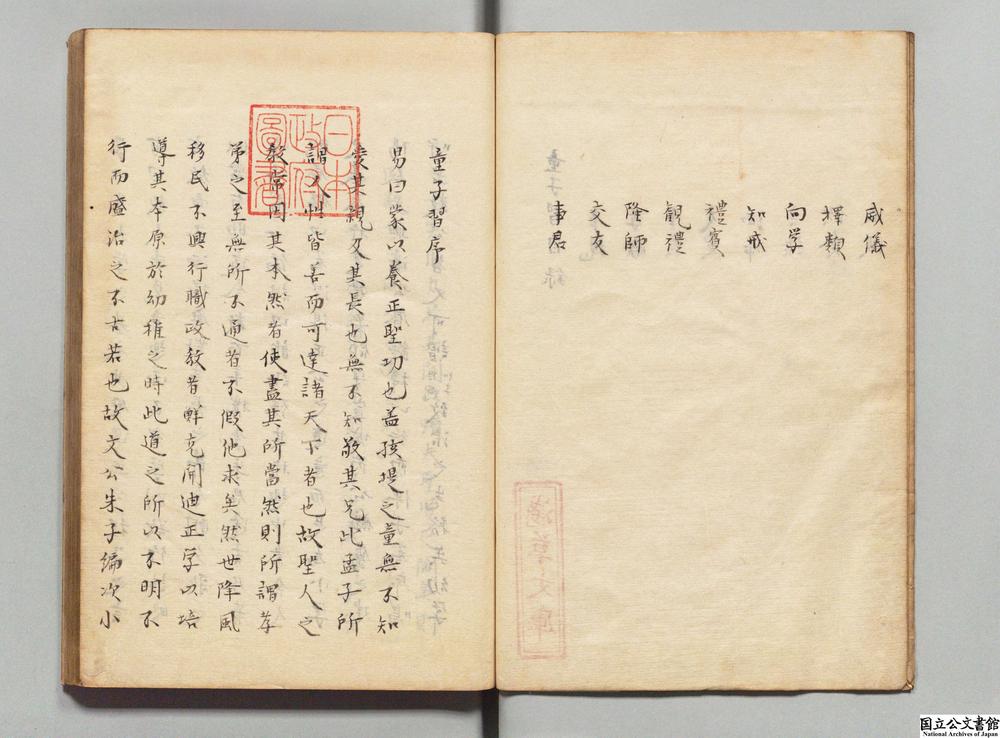 威儀
擇類
向学
知戒
禮賓
觀禮
隆師
交友
事君
童子習序
易曰蒙以養正聖功也盖孩提之童無不知
愛其親及其長也無不知敬其兄此孟子所
謂人性皆善而可達諸天下者也故聖人之
教常因其本然者使盡其所當然則所謂孝
弟之至無所不通者不假他求矣然世降風
移民不興行職政教者鮮克開迪正学以培
導其本原於幼稚之時此道之所以不明不
行而盛治之不古若也故文公朱子編次小
日本
政府
圖書
淺草文庫
国立公文書館
National Archives of Japan